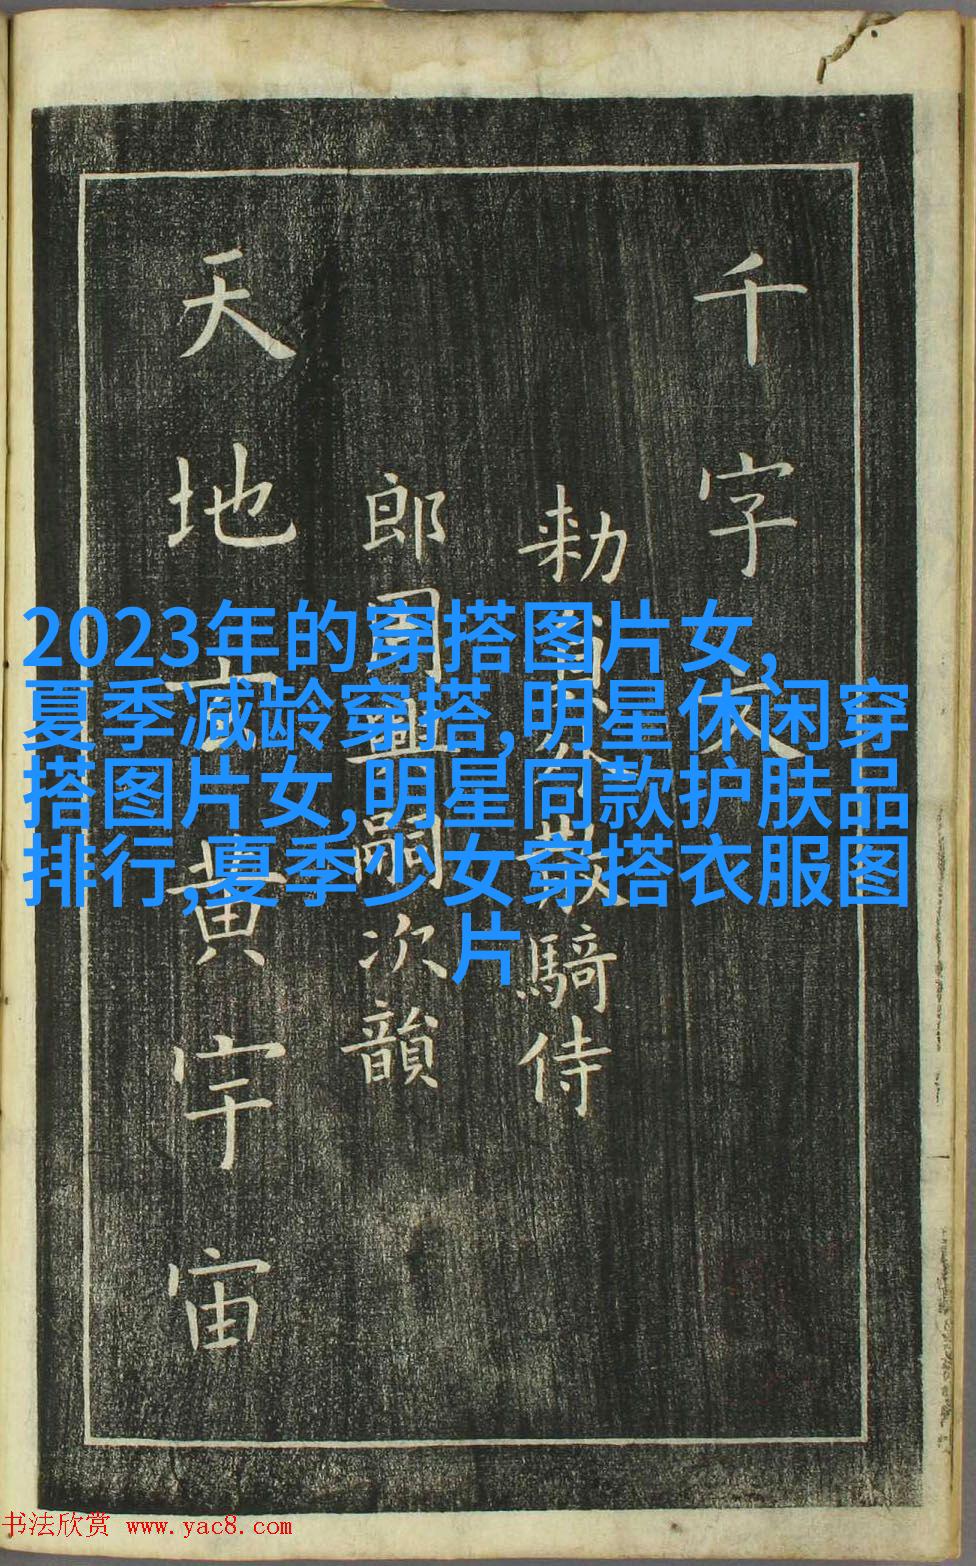 千字文
勑員外散騎侍
郎周興嗣次韻
天地玄黃宇宙
2023年的穿搭图片女,
夏季减龄穿搭,明星休闲穿
搭图片女,明星同款护肤品
排行,夏季少女穿搭衣服图
片
书法欣赏 www.yac8.com